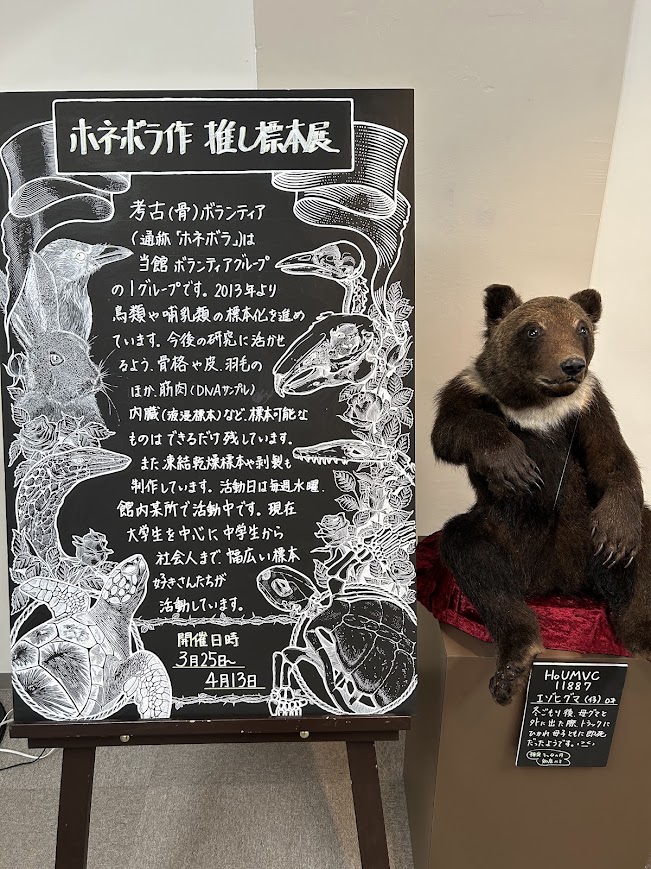 ホネボラ作 推し標本展
考古(骨)ボランティア
(通称「ホネボラ」)は
当館 ボランティアグループ
の1グループです。2013年より
鳥類や哺乳類の標本化を進め
ています。今後の研究に活かせ
るよう、骨格や皮、羽毛の
ほか、筋肉(DNAサンプル)
内臓(液浸標本)など、標本可能な
ものは できるだけ 残しています。
また 凍結乾燥標本や剥製も
制作しています。活動日は毎週水曜、
館内某所で活動中です。現在
大学生を中心に 中学生から
社会人まで、幅広い標本
好きさんたちが
活動しています。
開催日時
3月25日〜
4月13日
HoUMVC
11887
エゾヒグマ (仔)
冬ごもり後、母グマと
外に出た際、トラックに
ひかれ 母子ともに即死
だったようです。